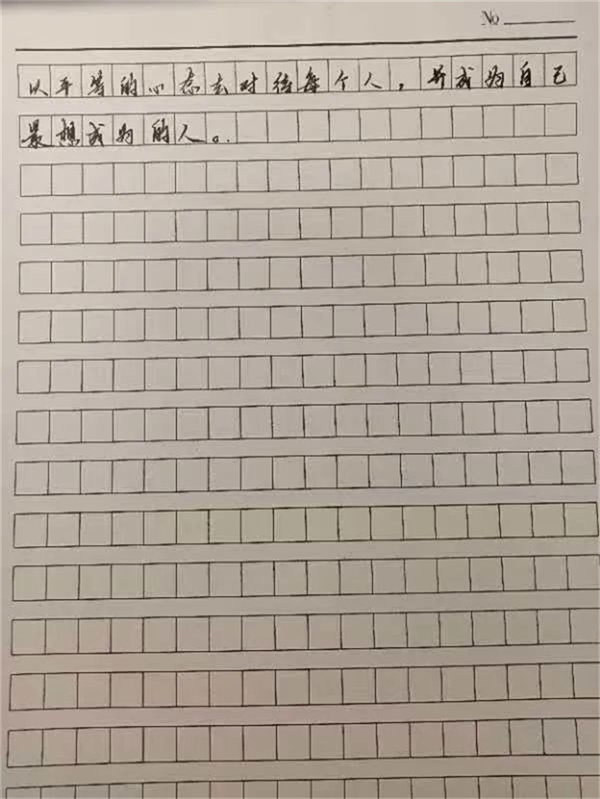 No
以平等的心态去对待每个人，并成为自己
最想成为的人。